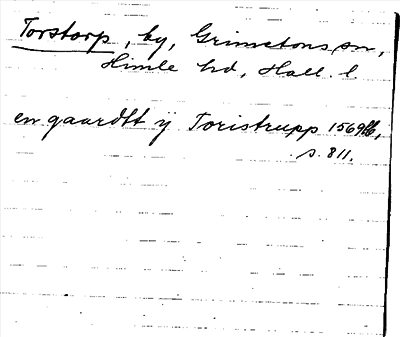 Torstorp, by, Grimetons sn,
Himle hd, Hall. l
en gaardtt ij Toristrupp 1569
s. 811.